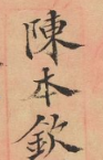 陳本欽